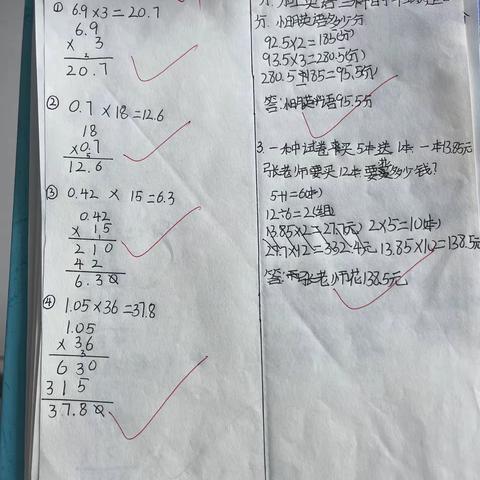 ① 6.9×3=20.7
6.9
× 3
20.7
② 0.7×18=12.6
18
×0.7
12.6
③ 0.42 × 15=6.3
0.42
× 15
210
42
6.30
④ 1.05×36=37.8
1.05
×36
630
315
37.80
分.小明英语多少分
92.5×2=185(分)
93.5×3=280.5(分)
280.5-185=95.5(分)
答:小明英语95.5分
3.一种试卷买5本送1本.一本13.85元
张老师要买12本要花多少钱?
5+1=6(本)
12÷6=2(组)
13.85×2=27.7(元) 2×5=10(本)
27.7×12=332.4元 13.85×10=138.5元
答:张老师花138.5元